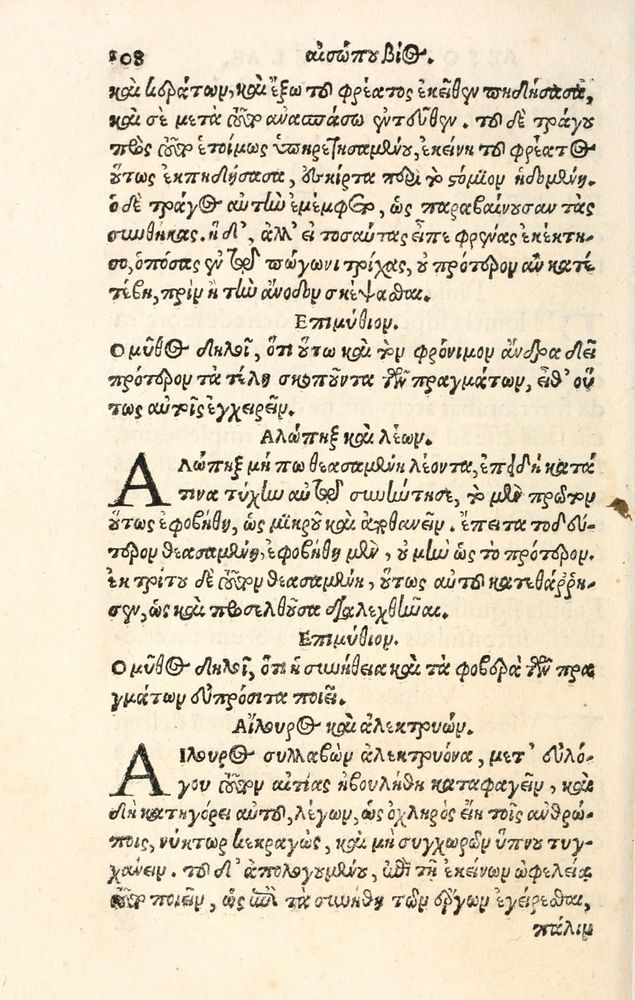 108 αἰσώπου βίος.
καὶ κεράτων, καὶ ἔξω τοῦ φρέατος ἐκεῖθεν πηδήσασα,
καὶ σὲ μετὰ τοῦτο ἀνασπάσω ἐντεῦθεν. τοῦ δὲ τράγου
πρὸς τοῦτο ἑτοίμως ὑπηρετησαμένου, ἐκείνη τοῦ φρέατος
οὕτως ἐκπηδήσασα, ἐσκίρτα περὶ τὸ στόμιον ἡδομένη.
ὁ δὲ τράγος αὐτὴν ἐμέμφετο, ὡς παραβαίνουσαν τὰς
συνθήκας. ἡ δ', ἀλλ' εἰ τοσαύτας εἶπε φρένας ἐκέκτη-
σο, ὁπόσας ἐν τῷ πώγωνι τρίχας, οὐ πρότερον ἂν κατέ
βης, πρὶν ἢ τὴν ἄνοδον σκέψασθαι.
Επιμύθιον.
Ο μῦθος δηλοῖ, ὅτι οὕτω καὶ τὸν φρόνιμον ἄνδρα δεῖ
πρότερον τὰ τέλη σκοποῦντα τῶν πραγμάτων, εἶθ' οὕ
τως αὐτοῖς ἐγχειρεῖν.
Αλώπηξ καὶ λέων.
Αλώπηξ μή πω θεασαμένη λέοντα, ἐπειδὴ κατά
τινα τύχην αὐτῷ συνήντησε, τὸ μὲν πρῶτον
οὕτως ἐφοβήθη, ὡς μικροῦ καὶ ἀποθανεῖν. ἔπειτα τὸ δεύ-
τερον θεασαμένη, ἐφοβήθη μὲν, οὐ μὴν ὡς τὸ πρότερον.
ἐκ τρίτου δὲ τοῦτον θεασαμένη, οὕτως αὐτοῦ κατεθάρρη-
σεν, ὡς καὶ προσελθοῦσα διαλεχθῆναι.
Επιμύθιον.
Ο μῦθος δηλοῖ, ὅτι ἡ συνήθεια καὶ τὰ φοβερὰ τῶν πρα
γμάτων εὐπρόσιτα ποιεῖ.
Αἴλουρος καὶ ἀλεκτρυών.
Αίλουρος συλλαβὼν ἀλεκτρυόνα, μετ' εὐλό-
γου τοῦτον αἰτίας ἠβουλήθη καταφαγεῖν, καὶ
δὴ κατηγόρει αὐτοῦ, λέγων, ὡς ὀχληρὸς εἴη τοῖς ἀνθρώ-
ποις, νύκτωρ κεκραγὼς, καὶ μὴ συγχωρῶν ὕπνου τυγ-
χάνειν. τοῦ δ' ἀπολογουμένου, ἐπὶ τῇ ἐκείνων ὠφελείᾳ
τοῦτο ποιεῖν, ὡς ἐπὶ τὰ συνήθη τῶν ἔργων ἐγείρεσθαι,
πάλιν